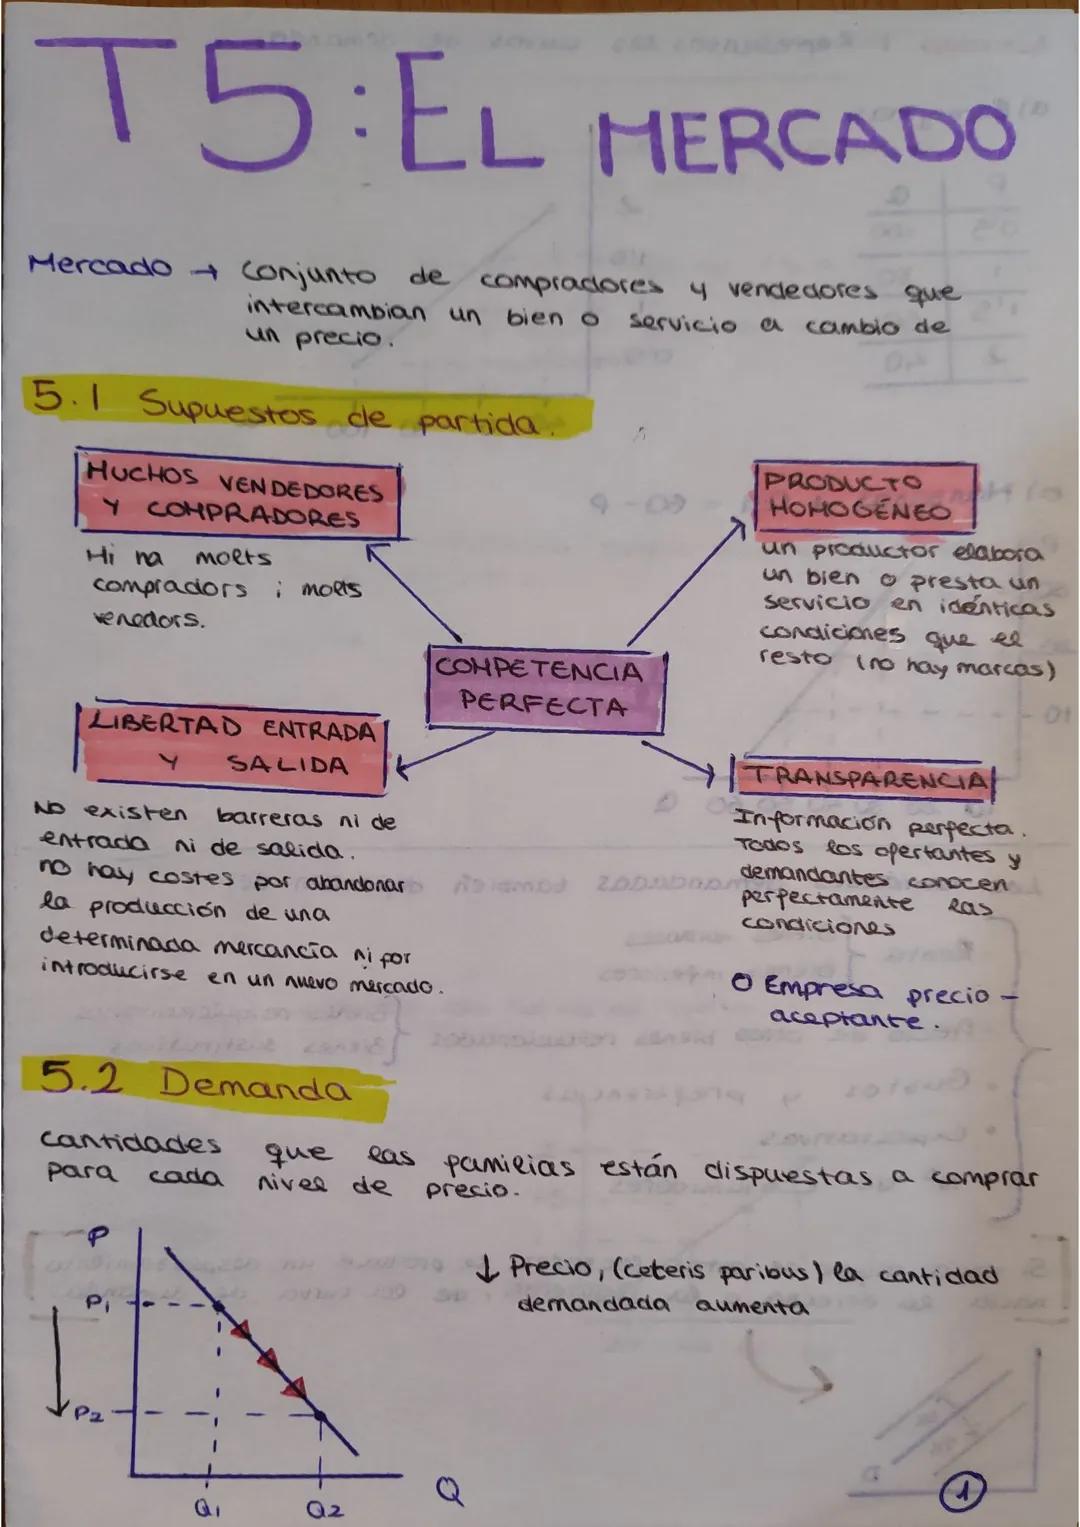 T5: EL MERCADO
Mercado → conjunto de compradores y vendedores que
intercambian un bien o servicio a cambio de
un precio.
5.1 Supuestos de partida.
MUCHOS VENDEDORES
Y COMPRADORES
Hi ha molts
compradors i molts
venedors.
PRODUCTO
HOMOGÉNEO
un productor elabora
un bien o presta un
servicio en idénticas
condiciones que el
resto (no hay marcas)
COMPETENCIA
PERFECTA
LIBERTAD ENTRADA
Y SALIDA
No existen barreras ni de
entrada ni de salida.
no hay costes por abandonar
la producción de una
determinada mercancía ni por
introducirse en un nuevo mercado.
TRANSPARENCIA
Información perfecta.
Todos los ofertantes y
demandantes conocen
perfectamente las
condiciones
O Empresa precio-
aceptante.
5.2 Demanda
Cantidades que las familias están dispuestas a comprar
para cada nivel de precio.
↓ Precio, (ceteris paribus) la cantidad
demandada aumenta
P
P1
P2
Q1 Q2
Q
1